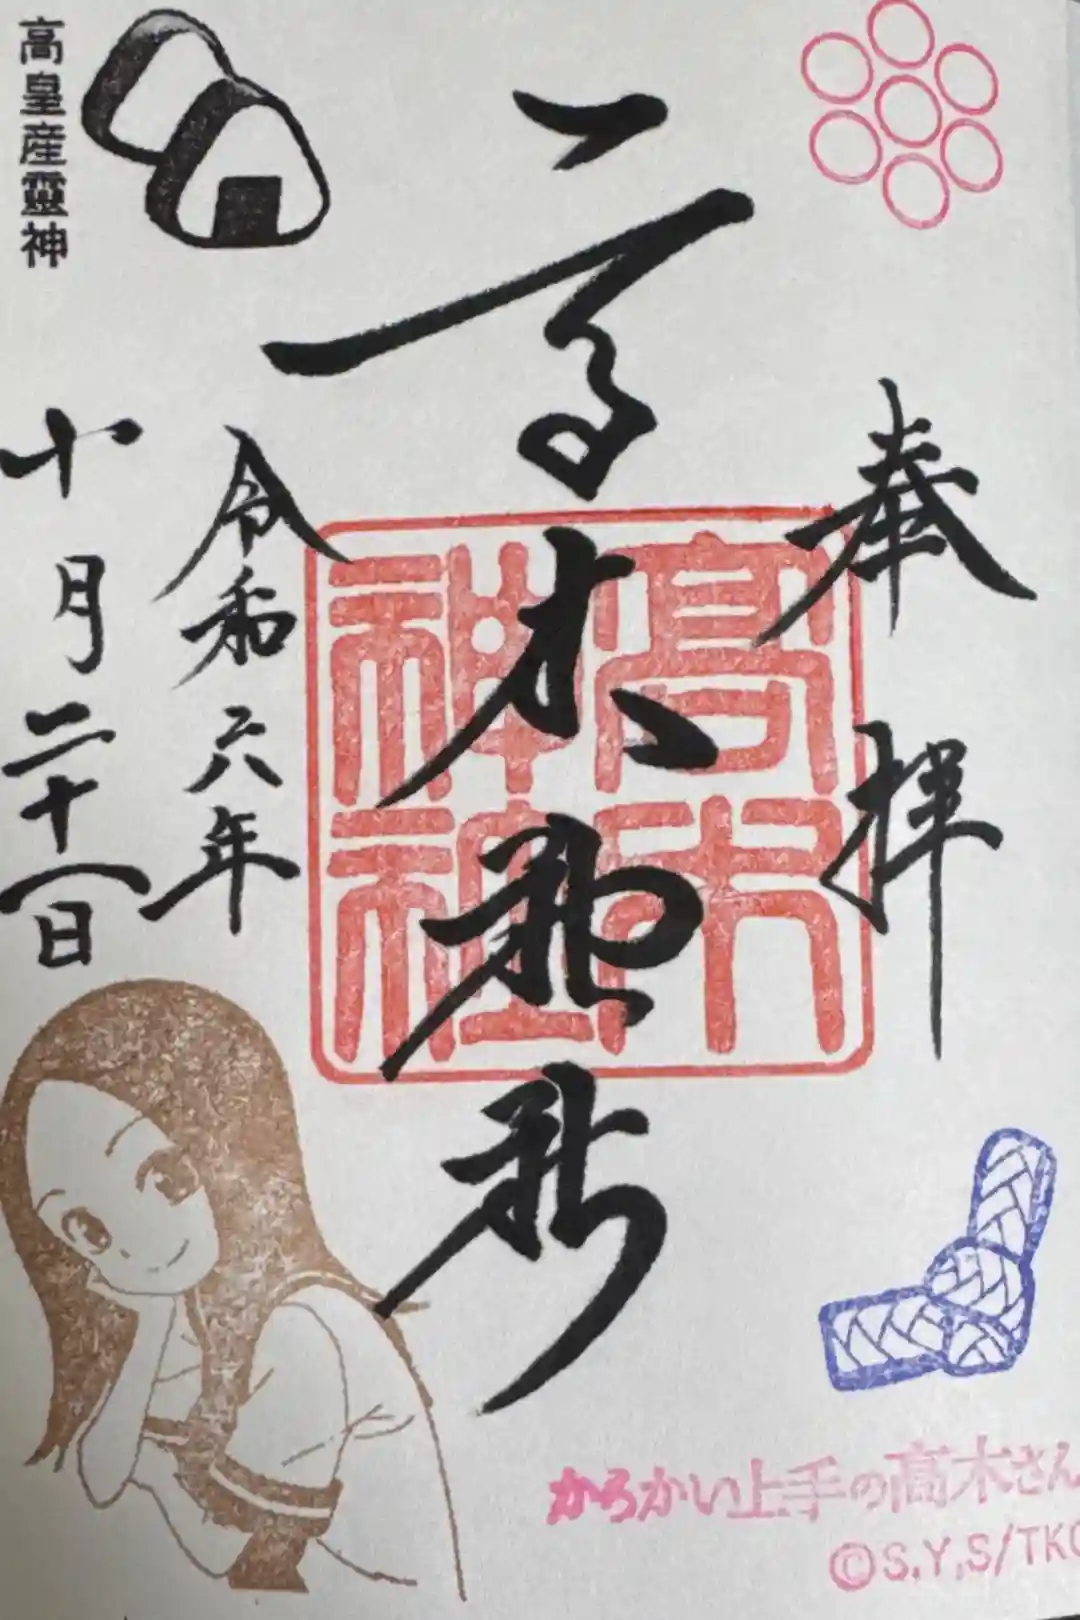 奉拝
高木神社
高木神社
令和六年
十月二十八日
高皇産靈神
からかい上手の高木さん
©S.Y,S/TKC